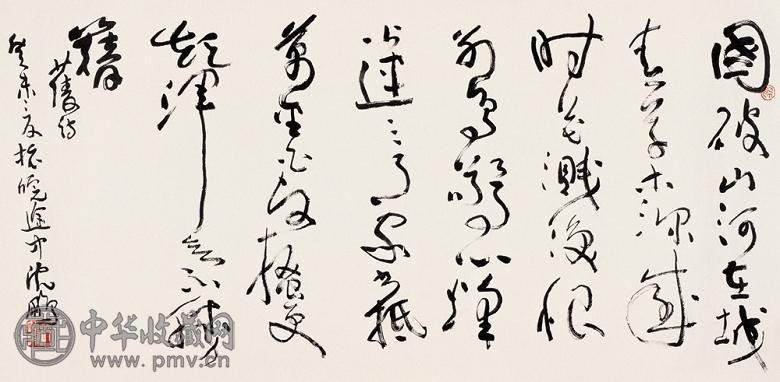 國破山河在城
春草木深感
时花濺淚恨
别鸟驚心烽
火連三月家书抵
萬金白頭搔更
短渾欲不勝
簪
少陵诗
癸未皖途中沈鹏
中华收藏网
www.pmv.cn